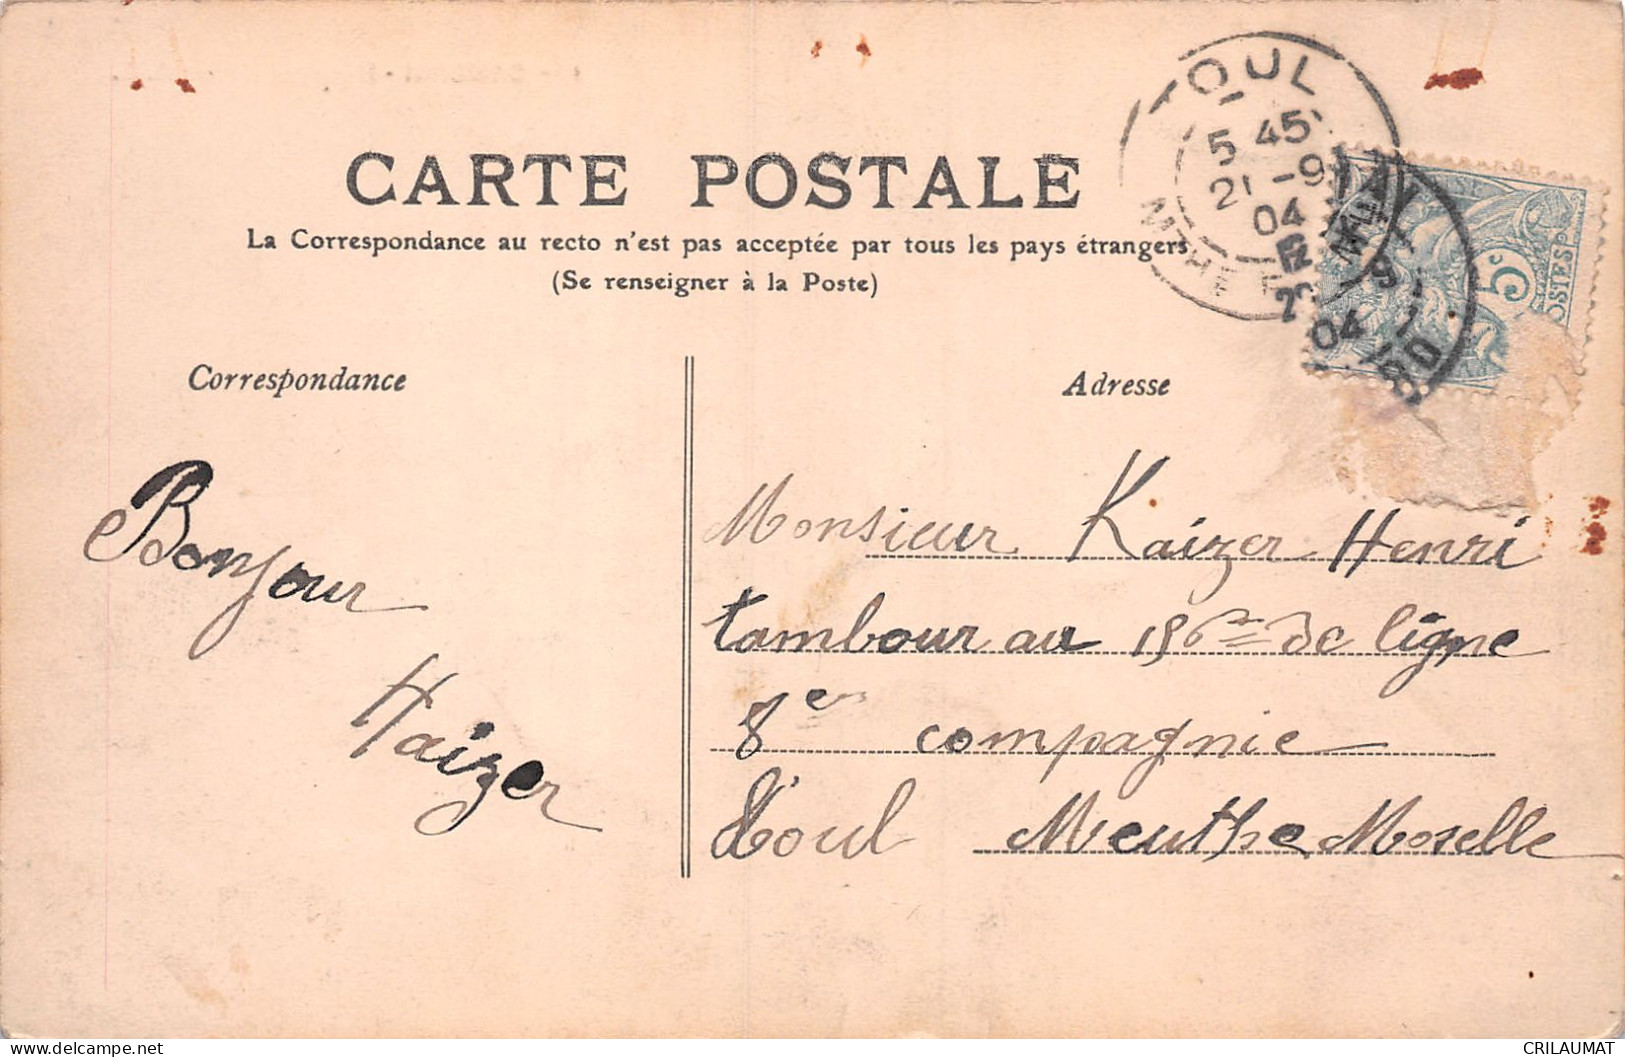 CARTE POSTALE
La Correspondance au recto n'est pas acceptée par tous les pays étrangers
(Se renseigner à la Poste)
Correspondance
Adresse
TOUL
5 45
21 -9
04
5c
POSTES
Bonjour
Kaizer
Monsieur Kaizer Henri
tambour au de ligne
8e compagnie
Toul Meuthe Moselle
CRILAUMAT